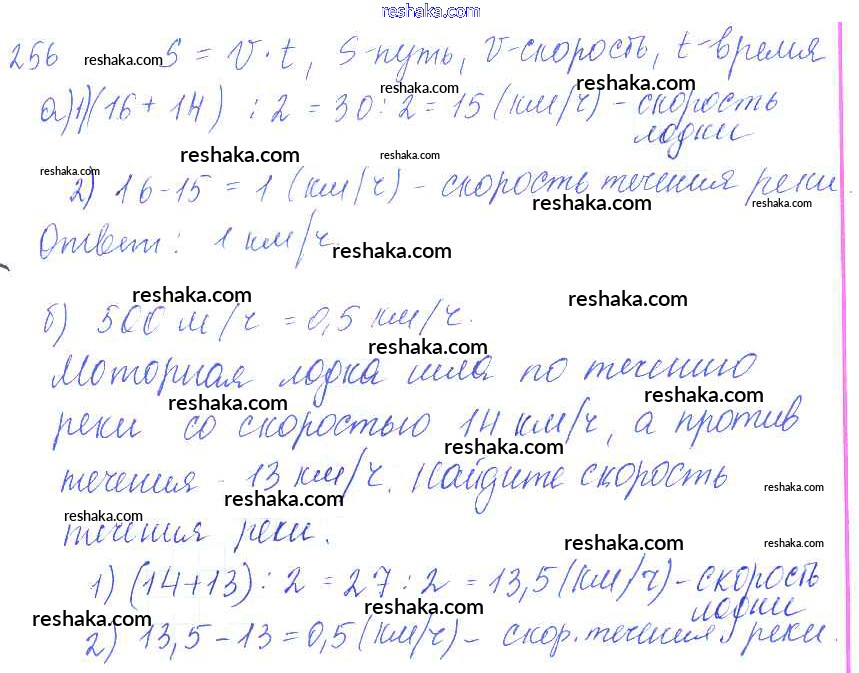 reshaka.com
256 reshaka.com S = V · t, S-путь, V-скорость, t-время
reshaka.com reshaka.com
а) 1) (16 + 14) : 2 = 30 : 2 = 15 (км/ч) - скорость
лодки
reshaka.com reshaka.com
reshaka.com
2) 16 - 15 = 1 (км/ч) - скорость течения реки
reshaka.com reshaka.com
Ответ: 1 км/ч
reshaka.com
reshaka.com reshaka.com
б) 500 м/ч = 0,5 км/ч.
reshaka.com
Моторная лодка шла по течению
reshaka.com reshaka.com
реки со скоростью 14 км/ч, а против
reshaka.com
течения - 13 км/ч. Найдите скорость
reshaka.com reshaka.com
reshaka.com
течения реки.
reshaka.com reshaka.com
1) (14+13) : 2 = 27 : 2 = 13,5 (км/ч) - скорость
лодки
reshaka.com reshaka.com
2) 13,5 - 13 = 0,5 (км/ч) - скор. течения реки.